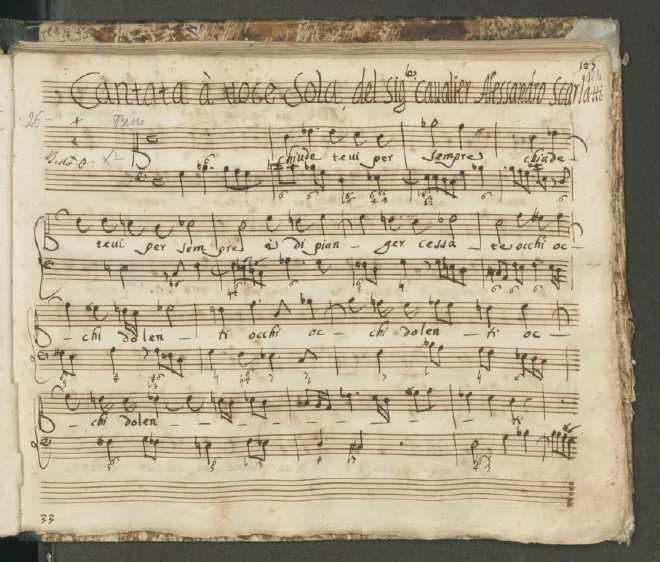 123
Cantata à voce Sola, del Sig. Cavalier Alessandro Scarlatti
26
chiude tevi per sempre chiude
tevi per sempre e di pian - ger cessa - te occhi oc -
- chi dolen - ti occhi oc - chi dolen - ti oc -
- chi dolen - ti
33